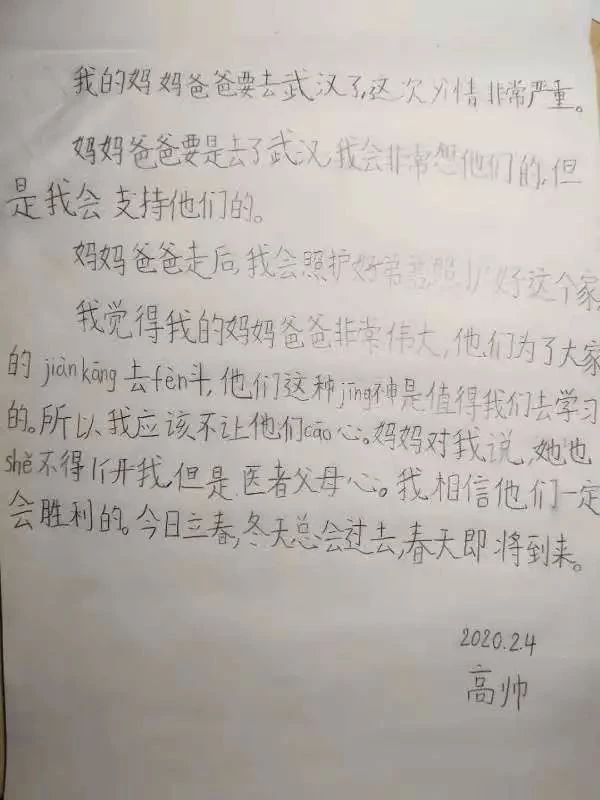 我的妈妈爸爸要去武汉了,这次情非常严重。
妈妈爸爸要是去了武汉,我会非常想他们的,但
是我会支持他们的。
妈妈爸爸走后,我会照护好这个家,
我觉得我的妈妈爸爸非常伟大,他们为了大家
的jiànkāng去fèn斗,他们这种jīng神是值得我们去学习
的。所以,我应该不让他们cāo心。妈妈对我说,她也
shě不得开我,但是医者父母心。我相信他们一定
会胜利的。今日立春,冬天总会过去,春天即将到来。
2020.2.4
高帅